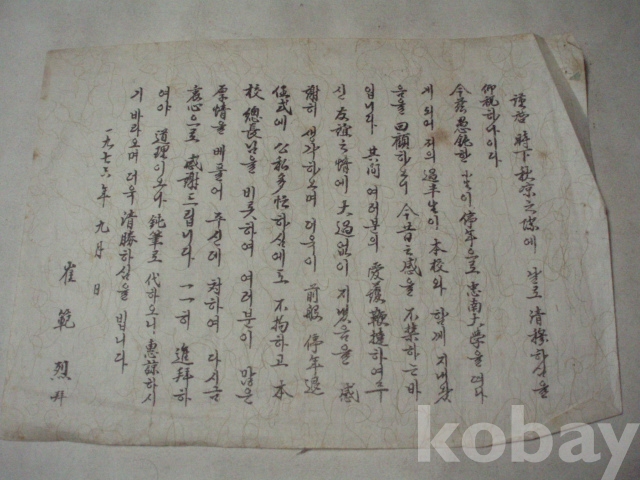 謹啓 時下秋凉之際에 날로 清穆하심을
仰祝하나이다
今般 愚鈍한 小生이 停年으로 忠南大學을 떠나
게 되어 저의 過半生이 本校와 함께 지내왔
음을 回顧하오니 今昔之感을 不禁하는바
입니다 其間 여러분의 愛護鞭撻하여주
신 友誼之情에 大過없이 지냈음을 感
謝히 생각하오며 더욱이 前般 停年退
任式에 公私多忙하심에도 不拘하고 本
校 總長님을 비롯하여 여러분이 많은
厚情을 베풀어 주신데 対하여 다시금
衷心으로 感謝드립니다 一一히 進拜하
여야 道理이오나 鈍筆로 代하오니 惠諒하시
기 바라오며 더욱 清勝하심을 빕니다
一九七六年 九月 日
崔 範 烈 拜
kobay